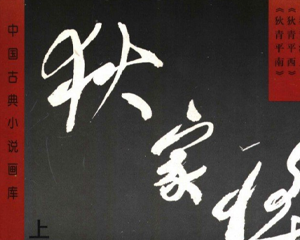 《狄青平西》
《狄青平南》
中国古典小说画库
狄家将
上